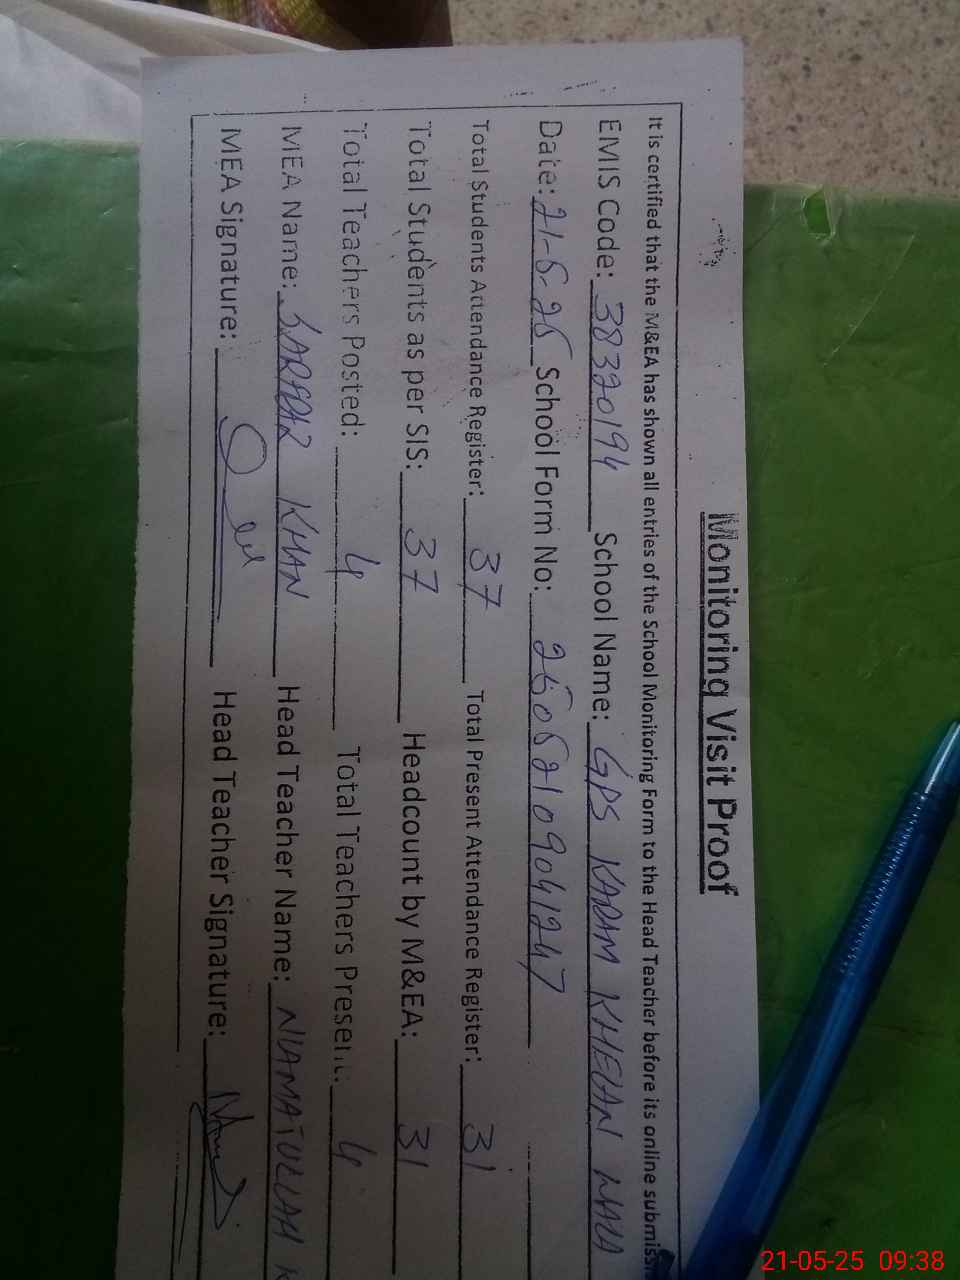 Monitoring Visit Proof
It is certified that the M&EA has shown all entries of the School Monitoring Form to the Head Teacher before its online submiss
EMIS Code: 38320194 School Name: GPS KARAM KHELAN WALA
Date: 21-5-25 School Form No: 25052109041247
Total Students Attendance Register: 37 Total Present Attendance Register: 31
Total Students as per SIS: 37 Headcount by M&EA: 31
Total Teachers Posted: 4 Total Teachers Present: 4
MEA Name: SARDAR KHAN Head Teacher Name: NIAMATULLAH K
MEA Signature: Head Teacher Signature:
21-05-25 09:38